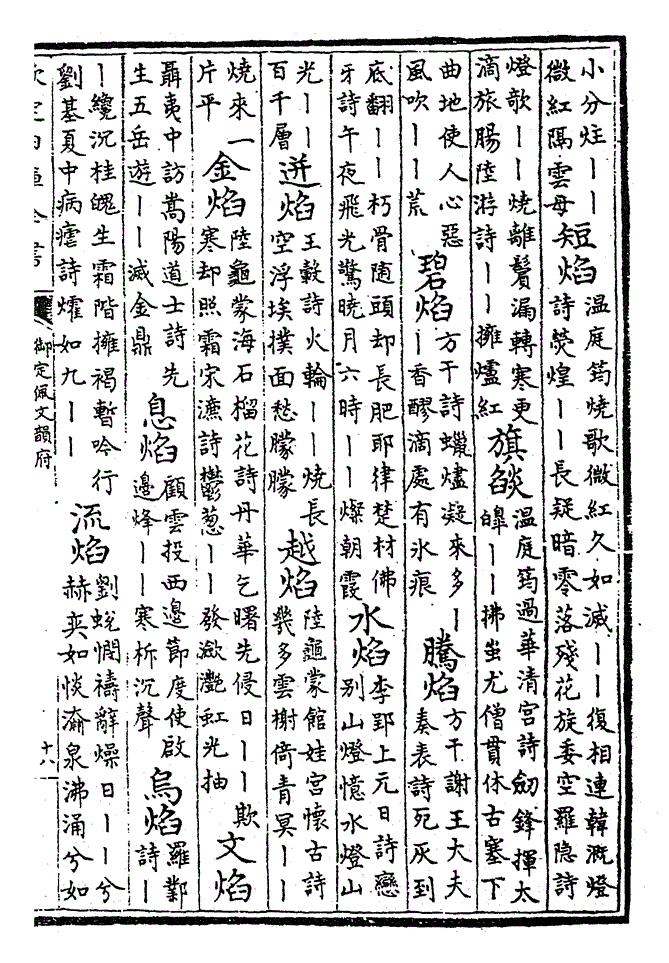 小分炷丨丨微紅隔雲母短焰温庭筠燒歌微紅久如減丨丨復相連韓溉燈詩熒煌丨丨長疑暗零落殘花旋委空羅隐詩
燈歌丨丨燒離鬢漏轉寒更滴旅腸陸游詩丨丨擁爐紅旗燄温庭筠過華清宮詩劒鋒揮太皥丨丨拂蚩尤僧貫休古塞下
曲地使人心惡風吹丨丨荒碧焰方干詩蠟燼凝來多丨丨香醪滴處有氷痕騰焰方干謝王大夫奏表詩死灰到
底翻丨丨朽骨随頭却長肥耶律楚材佛牙詩午夜飛光驚曉月六時丨丨燦朝霞水焰李郢上元日詩戀别山燈憶水燈山
光丨丨百千層迸焰王轂詩火輪丨丨燒長空浮埃撲面愁朦朦越焰陸龜蒙館娃宮懷古詩幾多雲榭倚青冥丨丨
燒來一片平金焰陸龜蒙海石榴花詩丹華乞曙先侵日丨丨欺寒却照霜宋濂詩鬱葱丨丨發瀲灔虹光抽文焰
聶夷中訪嵩陽道士詩先生五岳遊丨丨滅金鼎息焰顧雲投西邊節度使啟邊烽丨丨寒柝沉聲烏焰羅鄴詩丨
丨纔沉桂魄生霜階擁褐暫吟行劉基夏中病瘧詩爟如九丨丨流焰劉蛻憫禱辭燥日丨丨兮赫奕如惔瀹泉沸涌兮如
欽定四庫全書
御定佩文韻府
十八